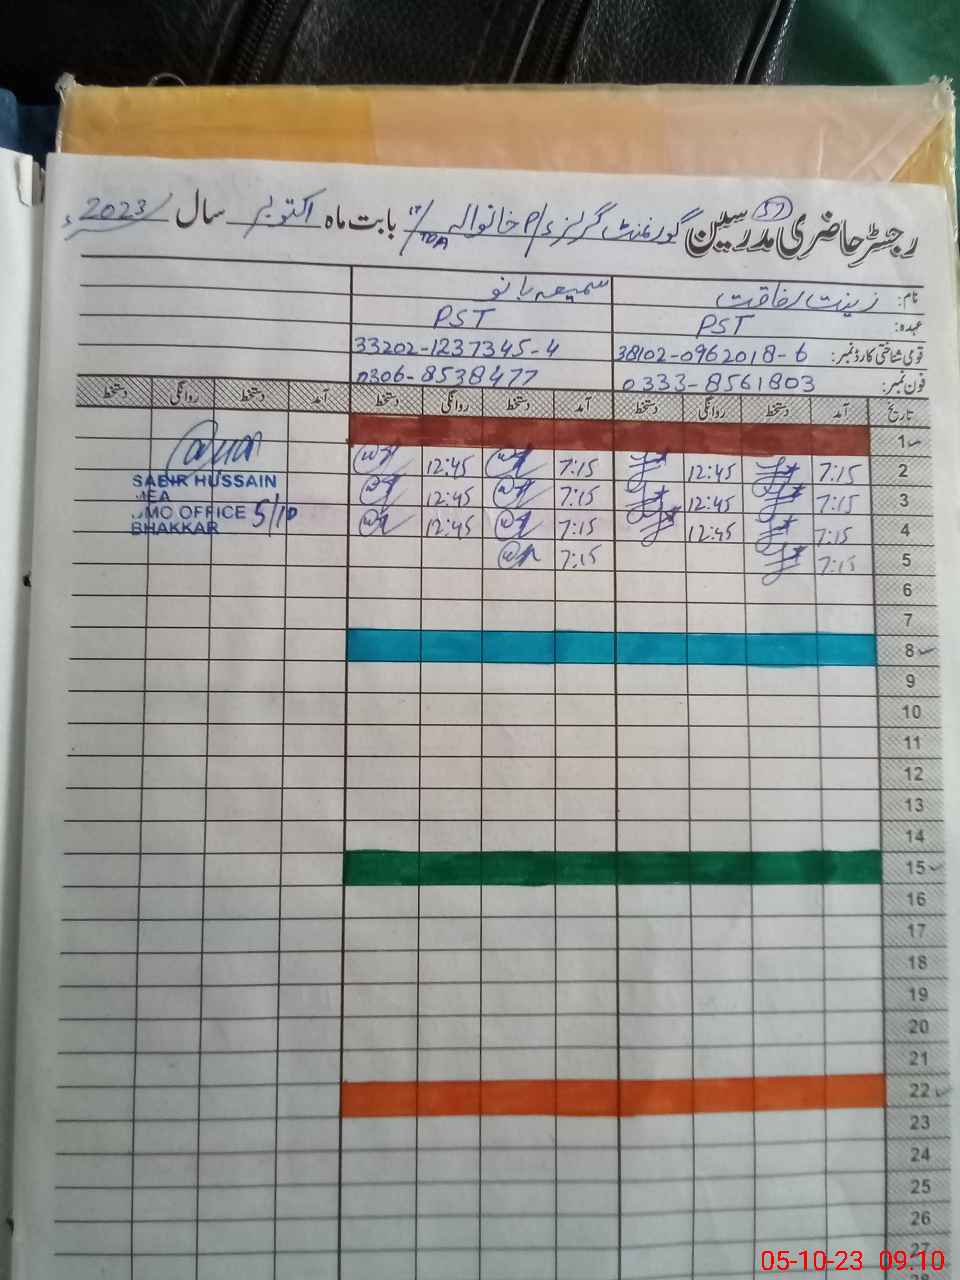 رجسٹر حاضری مدرسین گورنمنٹ گرلز P/ء خانوالہ 17/TDA بابت ماہ اکتوبر سال 2023ء
57
نام: زینت رفاقت سمیعہ بانو
عہدہ: PST PST
قومی شناختی کارڈ نمبر: 38102-0962018-6 33202-1237345-4
فون نمبر: 0333-8561803 0306-8538477
تاریخ آمد دستخط روانگی دستخط آمد دستخط روانگی دستخط آمد دستخط روانگی دستخط
1
2 7:15 12:45 7:15 12:45
3 7:15 12:45 7:15 12:45
4 7:15 12:45 7:15 12:45
5 7:15 7:15
6
7
8
9
10
11
12
13
14
15
16
17
18
19
20
21
22
23
24
25
26
27
28
SABIR HUSSAIN
MEA
DMO OFFICE 5/10
BHAKKAR
05-10-23 09:10